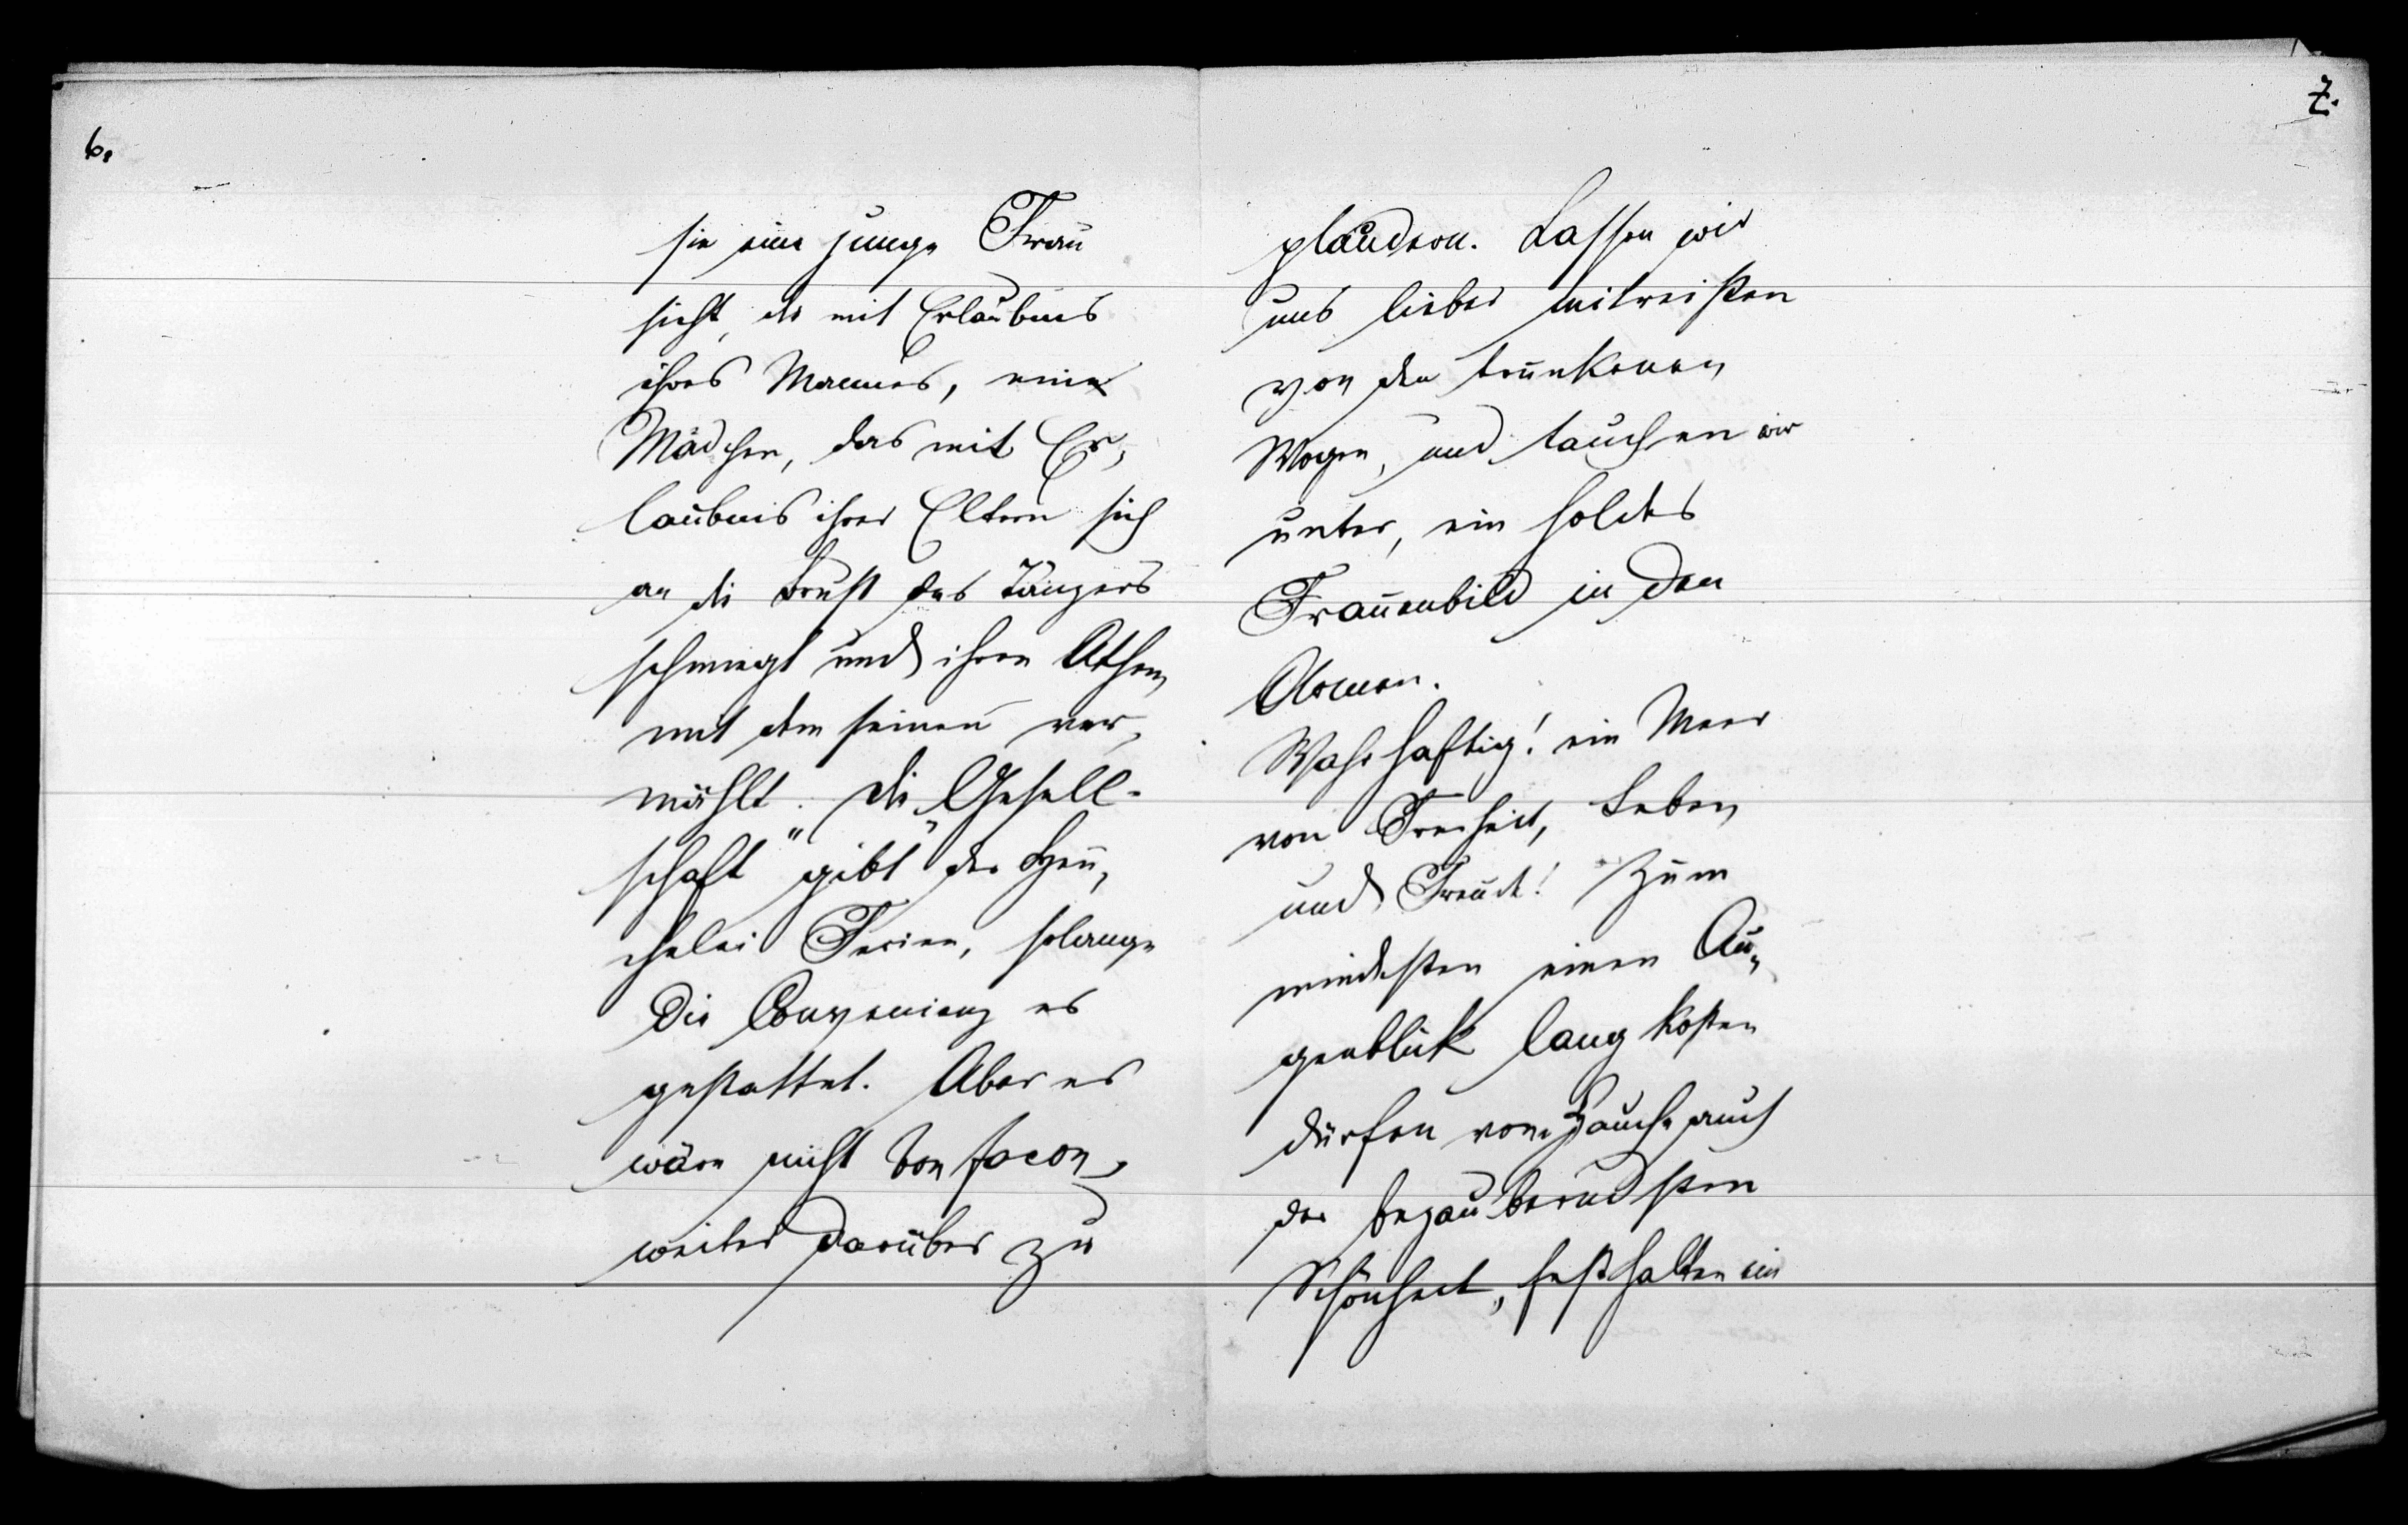 6.
sie eine junge Frau
sieht, die mit Erlaubnis
ihres Mannes, ein
Mädchen, das mit Er„
laubnis ihrer Eltern sich
an die Brust des Tänzers
schmiegt und ihren Athem
mit dem seinen ver„
mählt. Die „Gesell-
schaft“ gibt der Heu„
chelei Ferien, solange
die Convenienz es
gestattet. Aber es
wäre nicht bon facon,
weiter darüber zu
7.
plaudern. Lassen wir
uns lieber mitreißen
von den trunkenen
Wogen, und tauchen wir
unter, ein holdes
Frauenbild in den
Armen.
Wahrhaftig! ein Meer
von Freiheit, Leben
und Freude! Zum
mindesten einen Au„
genblick lang kosten
dürfen vom Hauche auch
der bezauberndsten
Schönheit, festhalten ein